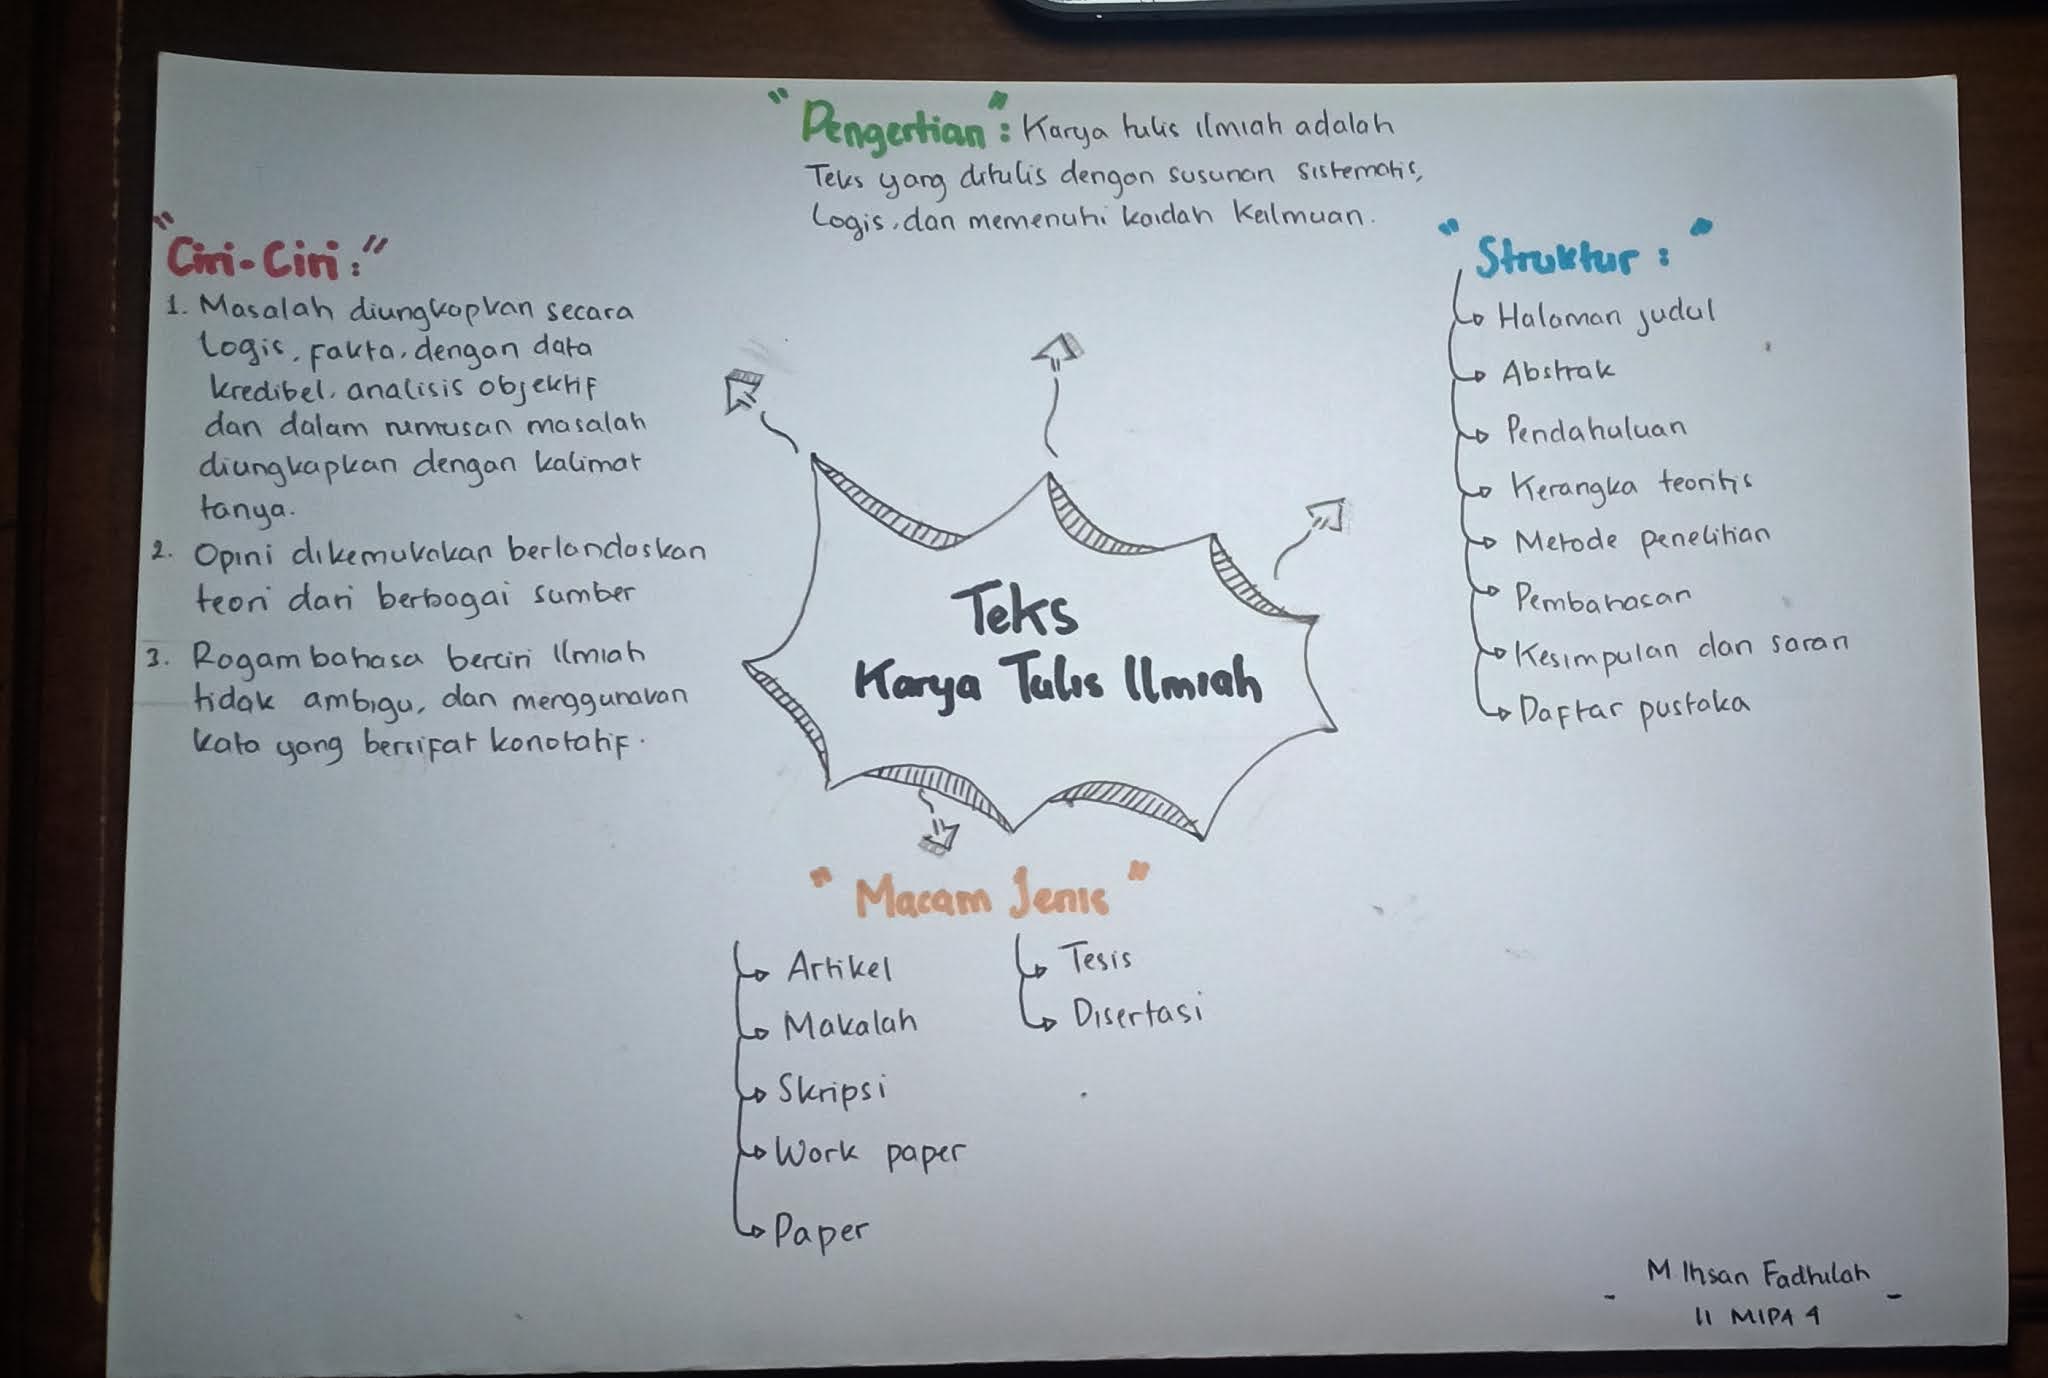 "Pengertian": Karya tulis ilmiah adalah
Teks yang ditulis dengan susunan sistematis,
Logis, dan memenuhi kaidah Keilmuan.
"Ciri-Ciri:"
1. Masalah diungkapkan secara
Logis, fakta, dengan data
kredibel, analisis objektif
dan dalam rumusan masalah
diungkapkan dengan kalimat
tanya.
2. Opini dikemukakan berlandaskan
teori dari berbagai sumber
3. Ragam bahasa berciri Ilmiah
tidak ambigu, dan menggunakan
kata yang bersifat konotatif.
"Struktur:"
Halaman judul
Abstrak
Pendahuluan
Kerangka teoritis
Metode penelitian
Pembahasan
Kesimpulan dan saran
Daftar pustaka
Teks
Karya Tulis Ilmiah
"Macam Jenis"
Artikel
Makalah
Skripsi
Work paper
Paper
Tesis
Disertasi
M. Ihsan Fadhilah
- 11 MIPA 4 -